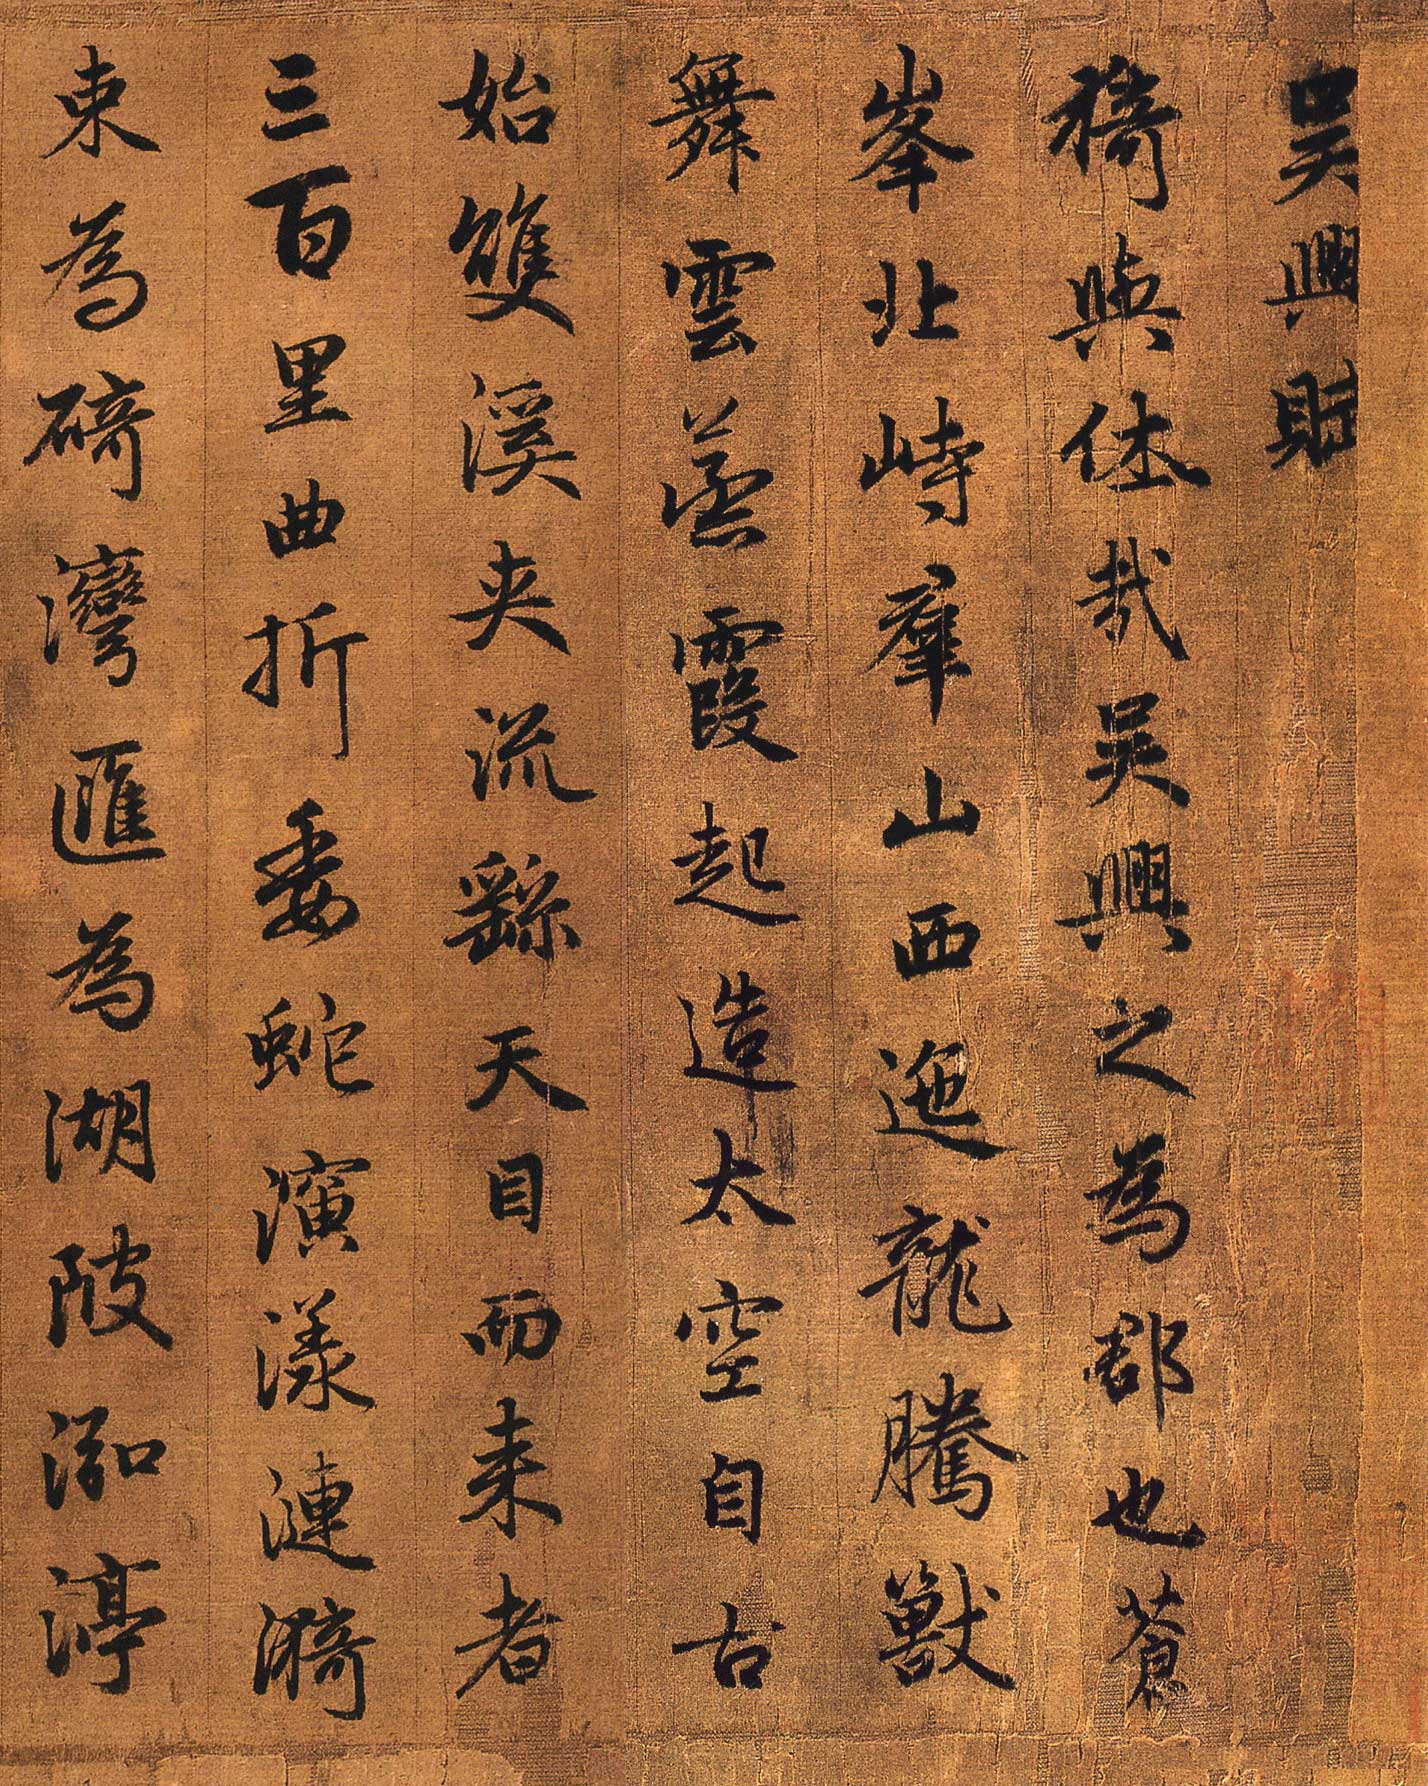 吳興賦
猗與休哉吳興之為郡也蒼
峯北峙羣山西迤龍騰獸
舞雲蒸霞起造太空自古
始雙溪夾流繇天目而來者
三百里曲折委蛇演漾漣漪
束為碕灣匯為湖陂泓渟